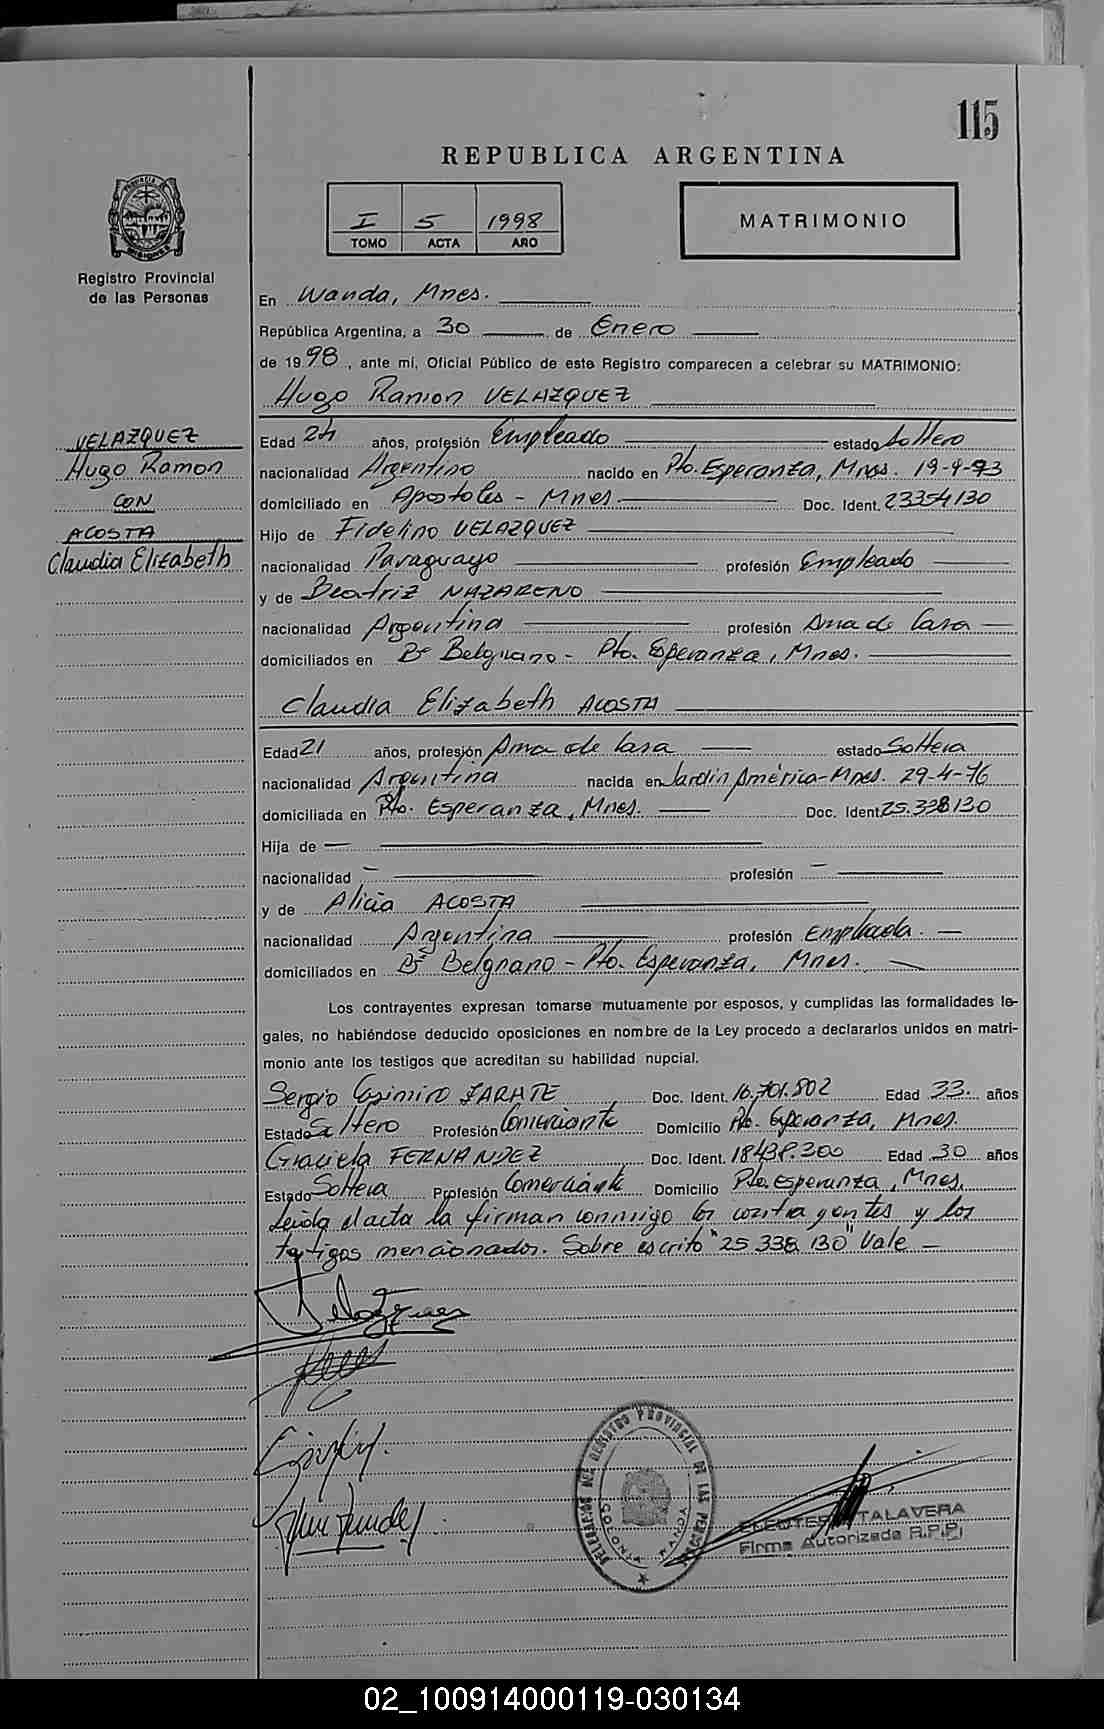 115
REPUBLICA ARGENTINA
I 5 1998
TOMO ACTA AÑO
MATRIMONIO
Registro Provincial
de las Personas
En Wanda, Mnes.
República Argentina, a 30 de Enero
de 1998, ante mí, Oficial Público de este Registro comparecen a celebrar su MATRIMONIO:
Hugo Ramon VELAZQUEZ
VELAZQUEZ
Hugo Ramon
CON
ACOSTA
Claudia Elizabeth
Edad 24 años, profesión Empleado estado Soltero
nacionalidad Argentino nacido en Pto. Esperanza, Mnes. 19-9-73
domiciliado en Apostoles - Mnes. Doc. Ident. 23354130
Hijo de Fidelino VELAZQUEZ
nacionalidad Paraguayo profesión Empleado
y de Beatriz NAZARENO
nacionalidad Argentina profesión Ama de Casa
domiciliados en Bº Belgrano - Pto. Esperanza, Mnes.
Claudia Elizabeth ACOSTA
Edad 21 años, profesión Ama de Casa estado Soltera
nacionalidad Argentina nacida en Jardin América-Mnes. 29-4-76
domiciliada en Pto. Esperanza, Mnes. Doc. Ident. 25.338130
Hija de —
nacionalidad — profesión —
y de Alicia ACOSTA
nacionalidad Argentina profesión Empleada. —
domiciliados en Bº Belgrano - Pto. Esperanza, Mnes.
Los contrayentes expresan tomarse mutuamente por esposos, y cumplidas las formalidades le-
gales, no habiéndose deducido oposiciones en nombre de la Ley procedo a declararlos unidos en matri-
monio ante los testigos que acreditan su habilidad nupcial.
Sergio Casimiro ZARATE Doc. Ident. 16.701.802 Edad 33. años
Estado Soltero Profesión Comerciante Domicilio Pto. Esperanza, Mnes.
Graciela FERNANDEZ Doc. Ident. 18438.300 Edad 30 años
Estado Soltera Profesión Comerciante Domicilio Pto. Esperanza, Mnes.
Leida el acta la firman conmigo los contrayentes y los
testigos mencionados. Sobre escrito "25 338 130" Vale —
DELEGACION DEL REGISTRO PROVINCIAL DE LAS PERSONAS
COLONIA WANDA
TALAVERA
Firma Autorizada R.P.P.
02_100914000119-030134